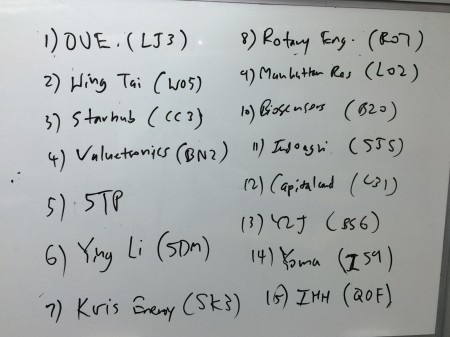 1) OUE. (LJ3)
2) Wing Tai (W05)
3) Starhub (CC3)
4) Valuetronics (BN2)
5) 5TP
6) Ying Li (5DM)
7) Kris Energy (SK3)
8) Rotary Eng. (R07)
9) Manhattan Res (L02)
10) Biosensors (B20)
11) Indoagri (5JS)
12) Capitaland (C31)
13) YZJ (BS6)
14) Yoma (I59)
15) IHH (Q0F)